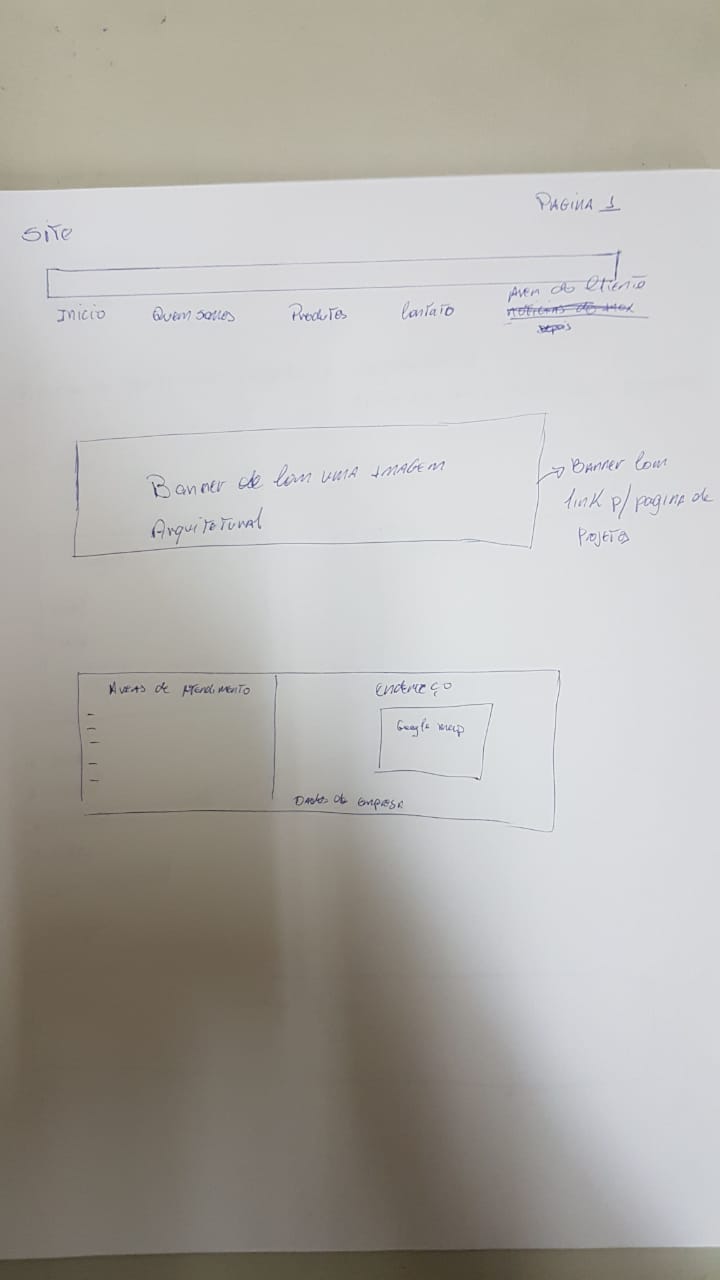 PAGINA 1
SITE
Inicio Quem somos Produtos Contato Area do Cliente
noticias do inox
depois
Banner de com uma imagem
Arquitetural
Banner com
link p/ pagina de
Projetos
Areas de Atendimento
Endereço
Google map
Dados da empresa